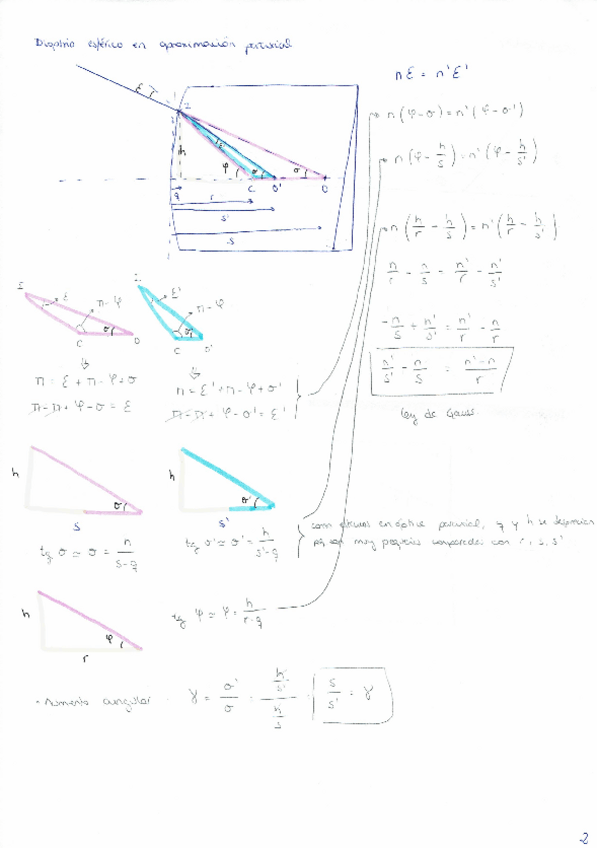 Dioptrio esférico en aproximación paraxial
n ε = n' ε'
n (φ - σ) = n' (φ - σ')
n (φ - h/s) = n' (φ - h/s')
n (h/r - h/s) = n' (h/r - h/s')
n/r - n/s = n'/r - n'/s'
- n/s + n'/s' = n'/r - n/r
n'/s' - n/s = n'-n/r
Ley de Gauss
ε
I
h
φ
σ
C O' O
q
r
s'
s
I ε π - φ
σ
C O
I ε' π - φ
σ'
C O'
π = ε + π - φ + σ
π - π + φ - σ = ε
π = ε' + π - φ + σ'
π - π + φ - σ' = ε'
h
σ
s
tg σ ≃ σ = h/s-q
h
σ'
s'
tg σ' ≃ σ' = h/s'-q
como estamos en óptica paraxial, q y h se desprecian
muy pequeños comparados con r, s, s'
h
φ
r
tg φ ≃ φ = h/r-q
· Aumento angular γ = σ'/σ = h/s' / h/s = s/s' = γ
2